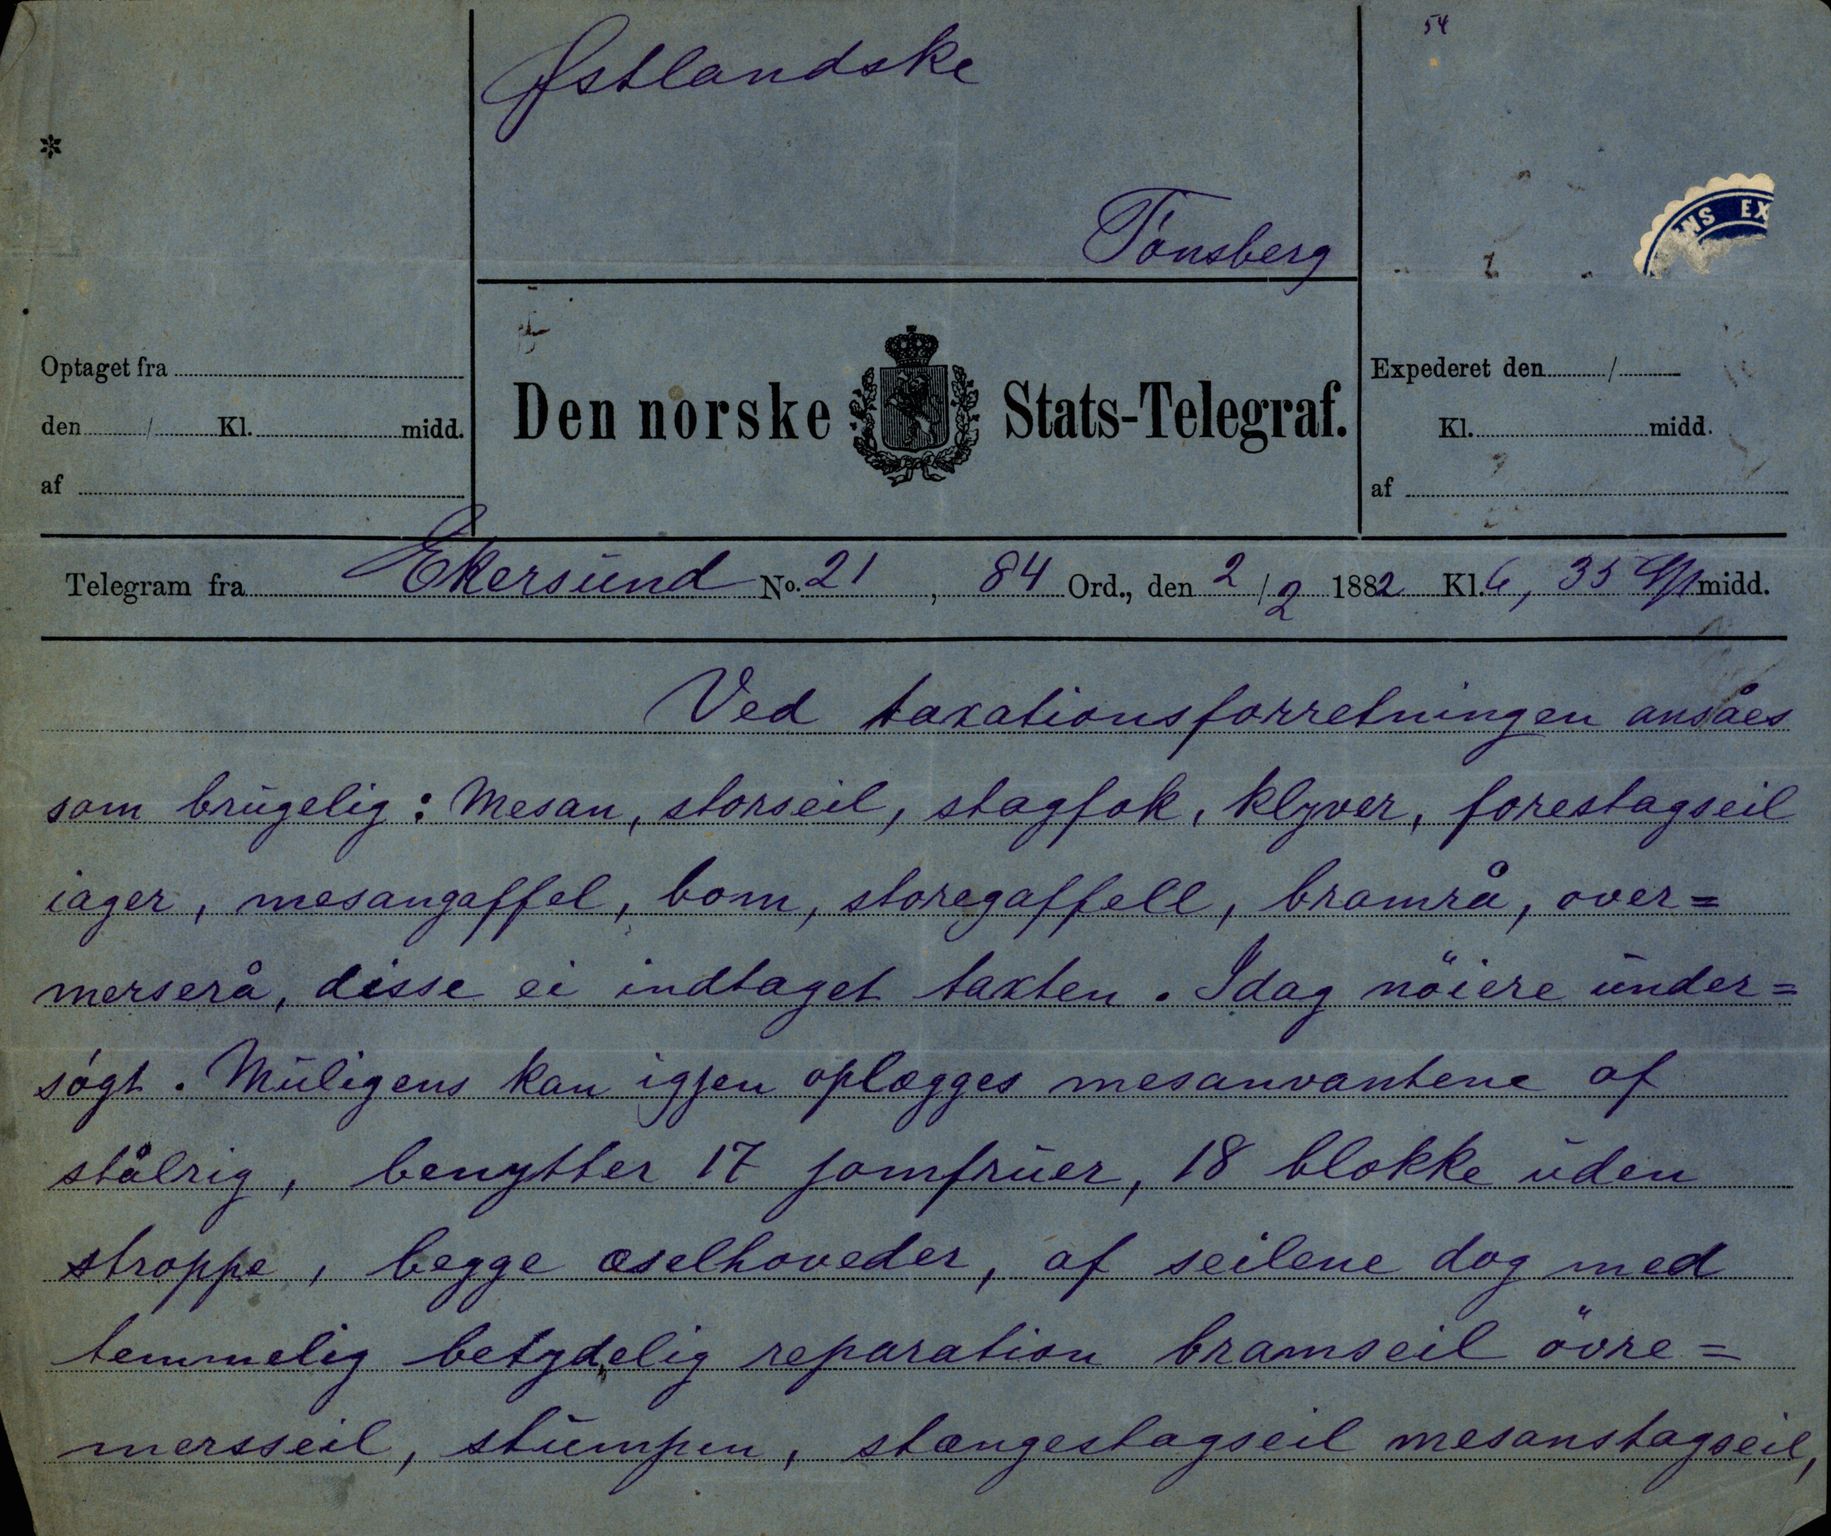 54
Østlandske
*
Tönsberg
NS EX
Optaget fra
den / Kl. midd.
af
Den norske Stats-Telegraf.
Expederet den /
Kl. midd.
af
Telegram fra Ekersund No. 21, 84 Ord., den 2/2 1882 Kl. 6,35 midd.
Ved taxationsforretningen ansåes
som brugelig: Mesan, storseil, stagfok, klyver, forestagseil
iager, mesangaffel, bom, storegaffell, bramrå, over=
merserå, disse ei indtaget taxten. Idag nöiere under=
sógt. Muligens kan igjen oplægges mesanvantene af
stålrig, benytter 17 jomfruer, 18 blokke uden
stroppe, begge æselhoveder, af seilene dog med
temmelig betydelig reparation bramseil övre=
mersseil, stumpen, stængestagseil mesanstagseil,